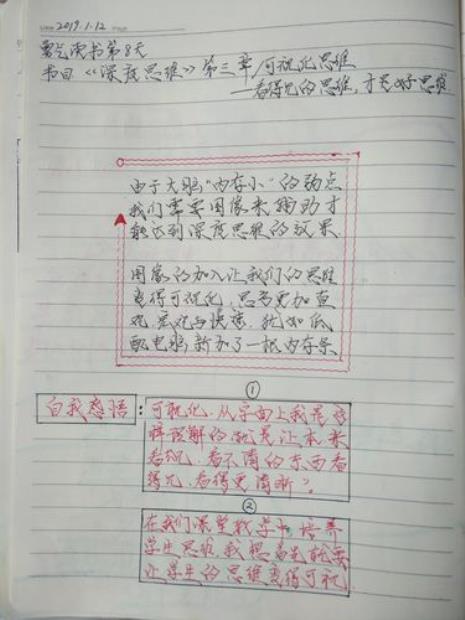 2019.1.12
读书第8天
书目《深度思维》第三章 可视化思维
—看得见的思维,才是好思维
由于大脑“内存小”的弱点
我们需要图像来辅助才
能达到深度思维的效果.
图象的加入让我们的思维
变得可视化,思考更加直
观、宏观与快速.犹如低
配电脑新加了一根内存条
①
自我感悟:
可视化.从字面上我是这
样理解的就是让本来
看不见、看不清的东西看
得见、看得更清晰。
②
在我们课堂教学中,培养
学生思维,我想首先就要
让学生的思维变得可视